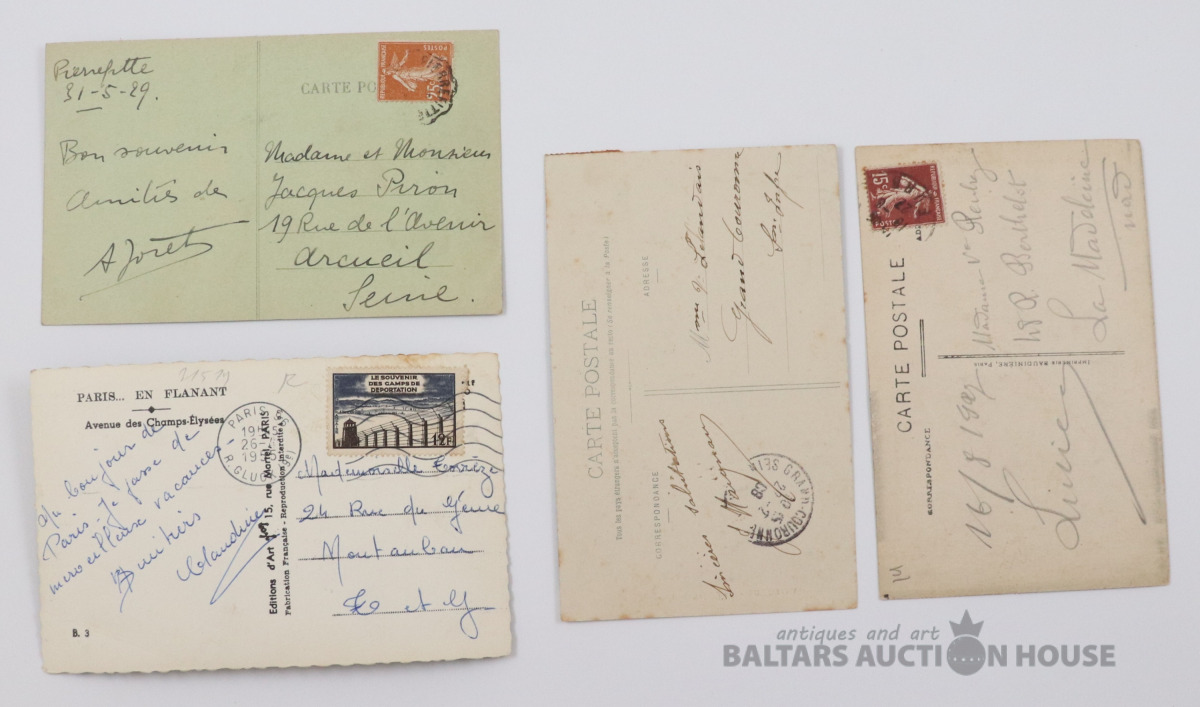 Pierrefitte
31-5-29.
Bon souvenir
Amitiés de
A Joret
CARTE PO
POSTES
REPUBLIQUE FRANÇAISE
25c
PIERREFITTE
Madame et Monsieur
Jacques Piron
19 Rue de l'Avenir
Arcueil
Seine.
PARIS... EN FLANANT
Avenue des Champs-Élysées
Un bonjour de
Paris. Je passe de
merveilleuses vacances
Amitiés
Claudine
B. 3
PARIS
R GLUCK
Editions d'Art 15, rue Martel, PARIS
Fabrication Française - Reproduction Interdite
LE SOUVENIR
DES CAMPS DE
DEPORTATION
12F
Mademoiselle
24 Rue du Génie
Montauban
T et G
CARTE POSTALE
Tous les pays étrangers n'acceptent pas la correspondance au recto. (Se renseigner à la Poste)
CORRESPONDANCE
ADRESSE
Mme
Grand Couronne
Sne Infre
Sincères salutations
GRAND-COURONNE
15c
REPUBLIQUE FRANÇAISE
POSTES
CARTE POSTALE
CORRESPONDANCE
IMPRIMERIE BAUDINIÈRE, Paris
Madame Vve
48 R. Berthelot
La Madeleine
Nord
16/8/1927
Lucie
antiques and art
BALTARS AUCTION HOUSE